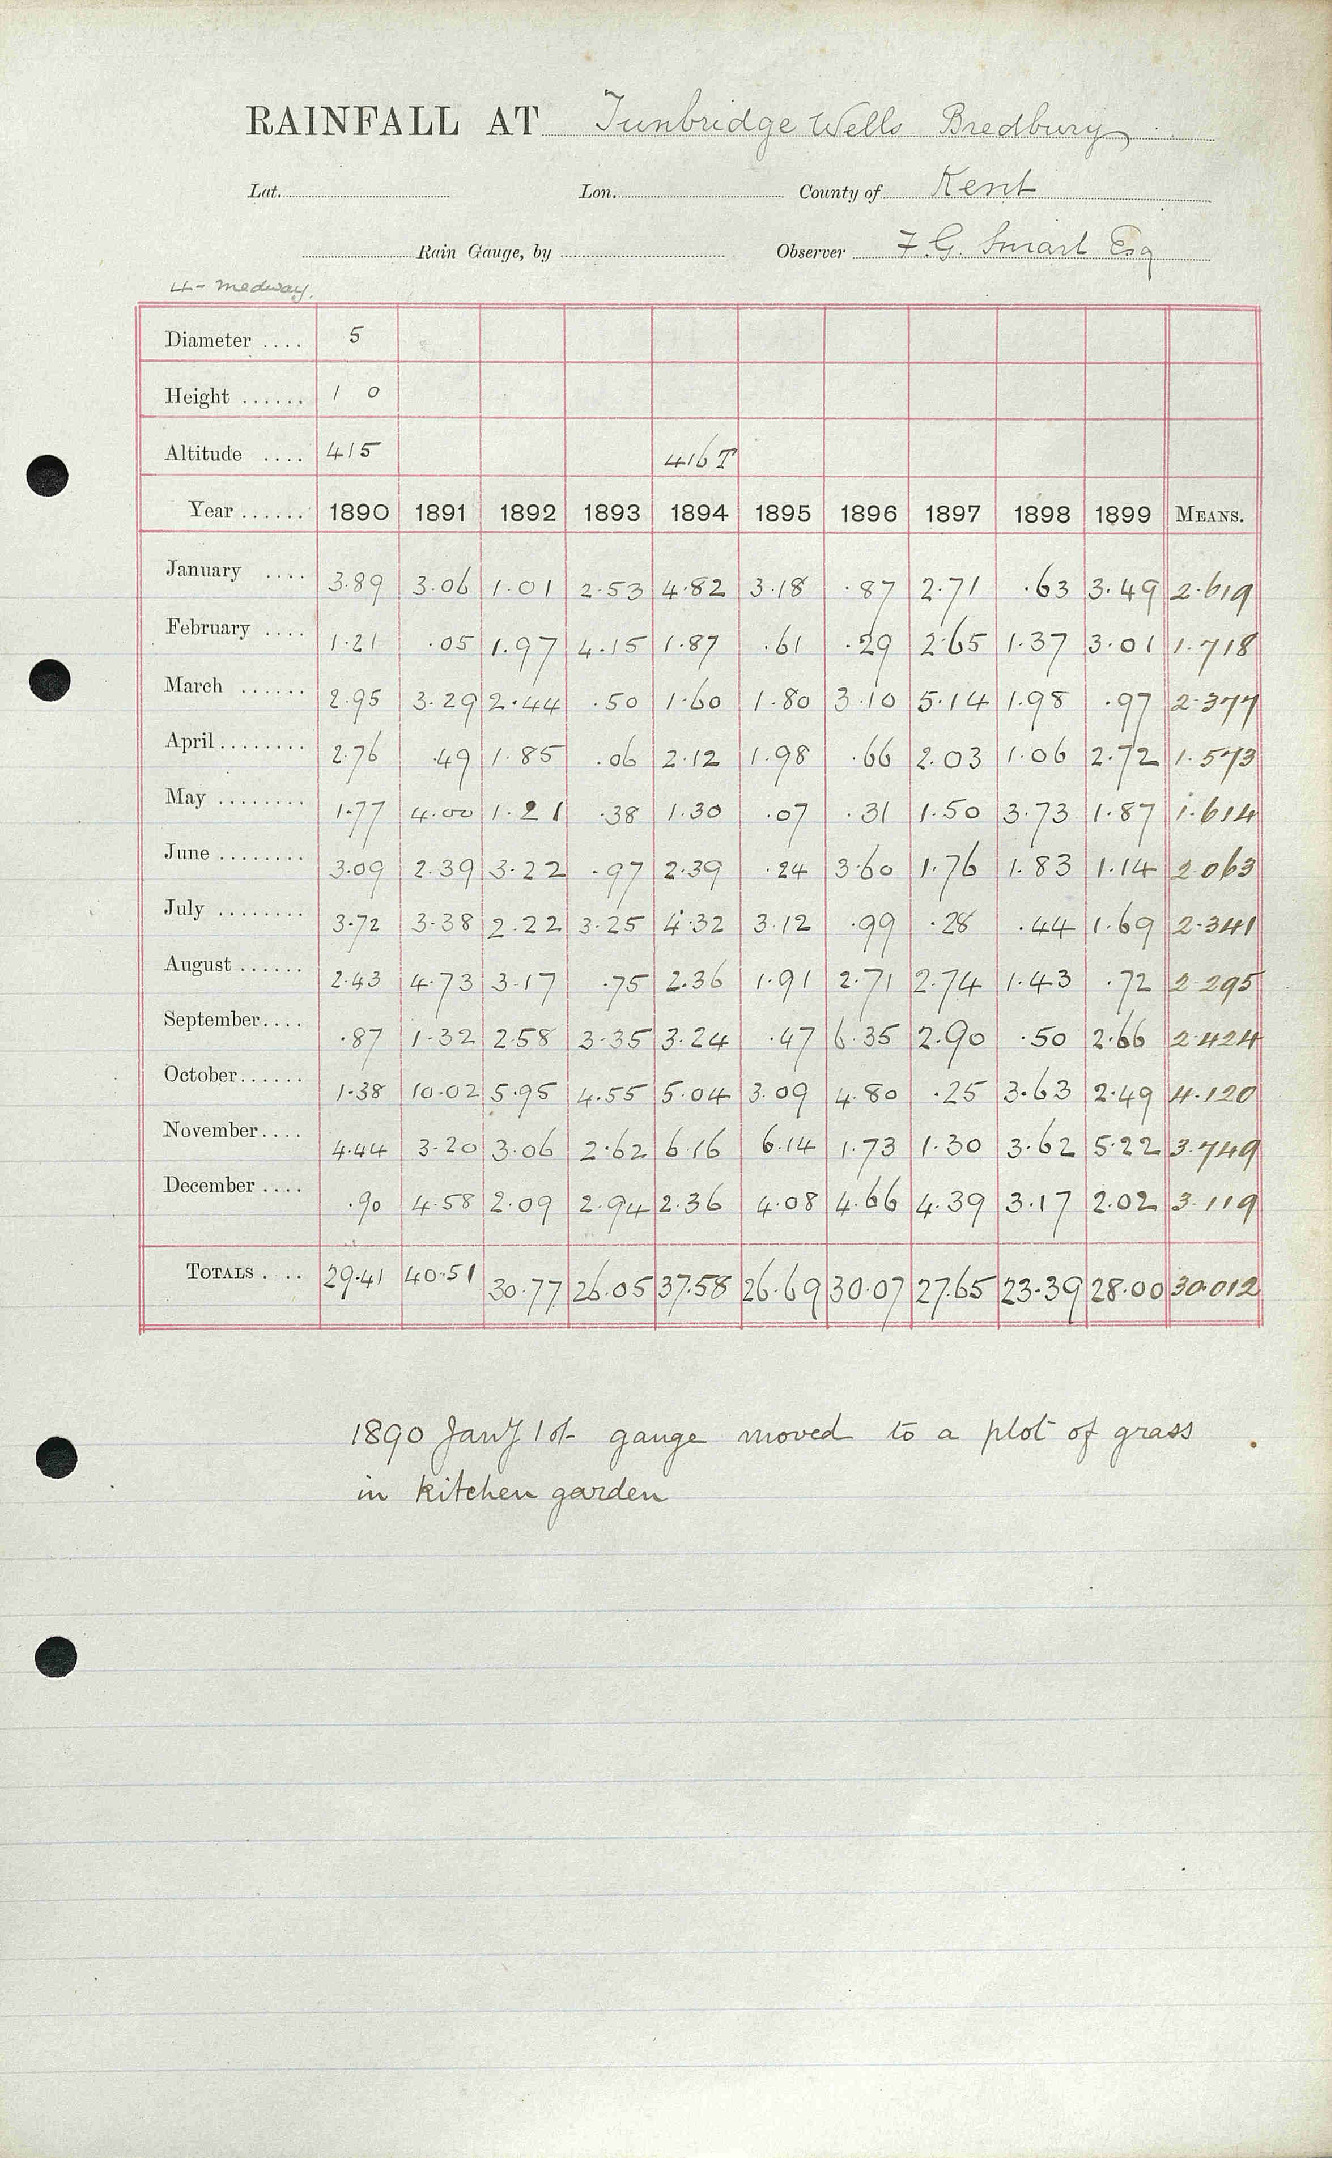 RAINFALL AT Tunbridge Wells Bredbury
Lat. Lon. County of Kent
Rain Gauge, by Observer F. G. Smart Esq
4 - Medway.
Diameter .... 5
Height ...... 1 0
Altitude .... 415 416 T
Year ...... 1890 1891 1892 1893 1894 1895 1896 1897 1898 1899 MEANS.
January .... 3.89 3.06 1.01 2.53 4.82 3.18 .87 2.71 .63 3.49 2.619
February .... 1.21 .05 1.97 4.15 1.87 .61 .29 2.65 1.37 3.01 1.718
March ...... 2.95 3.29 2.44 .50 1.60 1.80 3.10 5.14 1.98 .97 2.377
April ........ 2.76 .49 1.85 .06 2.12 1.98 .66 2.03 1.06 2.72 1.573
May ........ 1.77 4.00 1.21 .38 1.30 .07 .31 1.50 3.73 1.87 1.614
June ........ 3.09 2.39 3.22 .97 2.39 .24 3.60 1.76 1.83 1.14 2.063
July ........ 3.72 3.38 2.22 3.25 4.32 3.12 .99 .28 .44 1.69 2.341
August ...... 2.43 4.73 3.17 .75 2.36 1.91 2.71 2.74 1.43 .72 2.295
September .... .87 1.32 2.58 3.35 3.24 .47 6.35 2.90 .50 2.66 2.424
October ...... 1.38 10.02 5.95 4.55 5.04 3.09 4.80 .25 3.63 2.49 4.120
November .... 4.44 3.20 3.06 2.62 6.16 6.14 1.73 1.30 3.62 5.22 3.749
December .... .90 4.58 2.09 2.94 2.36 4.08 4.66 4.39 3.17 2.02 3.119
TOTALS .... 29.41 40.51 30.77 26.05 37.58 26.69 30.07 27.65 23.39 28.00 30.012
1890 Jany 1st gauge moved to a plot of grass
in kitchen garden